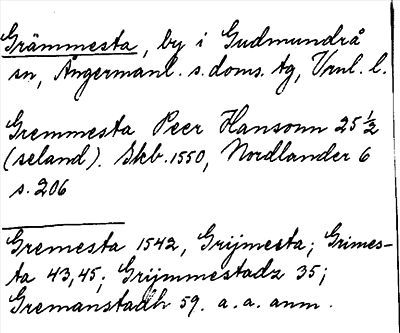 Grämmesta, by i Gudmundrå
sn, Ångermanl. s. doms. tg, Vrnl. l.
Gremmesta Peer Hansonn 25 1/2
(seland). Skb. 1550, Nordlander 6
s. 206
Gremesta 1542, Grijmesta; Grimes-
ta 43, 45; Grijmmestadz 35;
Gremanstadh 59. a. a. anm.